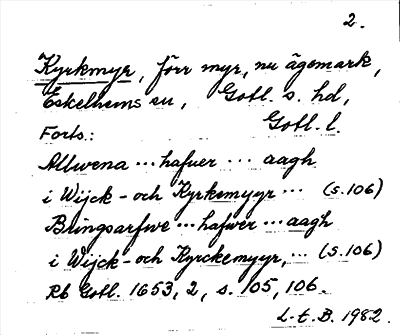 2.
Kyrkmyr, förr myr, nu ägomark,
Eskelhems sn, Gotl. s. hd,
Gotl. l.
Forts.:
Allwena ... hafuer ... aagh
i Wijck- och Kyrkemyyr ... (s. 106)
Bringsarfwe ... hafwer ... aagh
i Wijck- och Kyrckemyyr, ... (s. 106)
Rb Gotl. 1653, 2, s. 105, 106.
L-t. B. 1982.